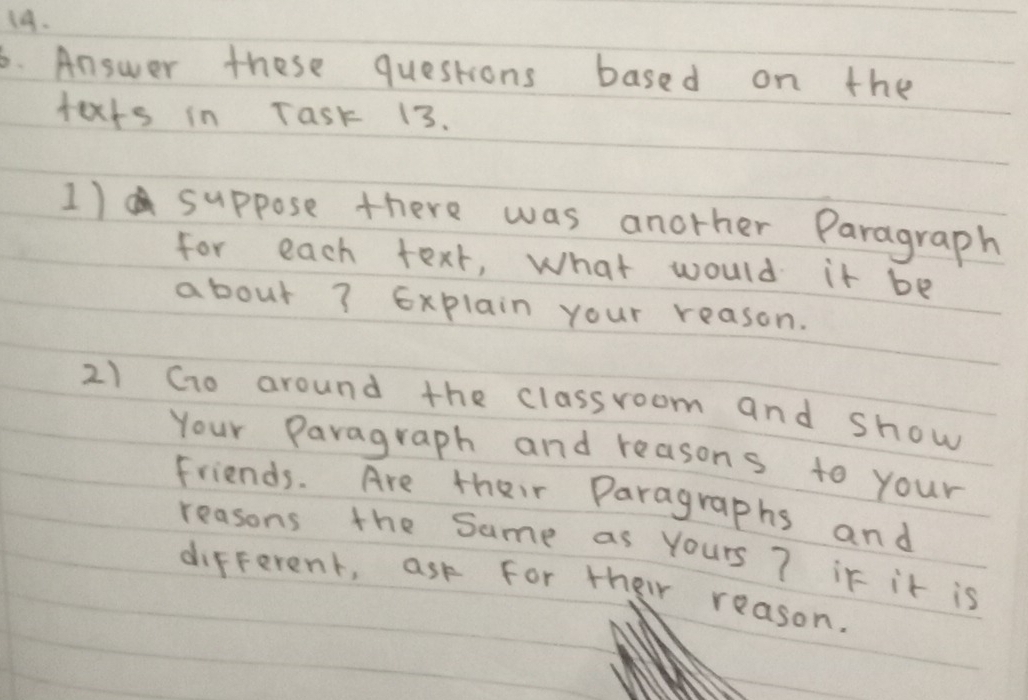 14.
b. Answer these questions based on the
texts in Task 13.
1) suppose there was another Paragraph
for each text, What would it be
about ? Explain your reason.
2) Go around the classroom and show
Your Paragraph and reasons to your
friends. Are their Paragraphs and
reasons the same as yours ? if it is
different, ask for their reason.